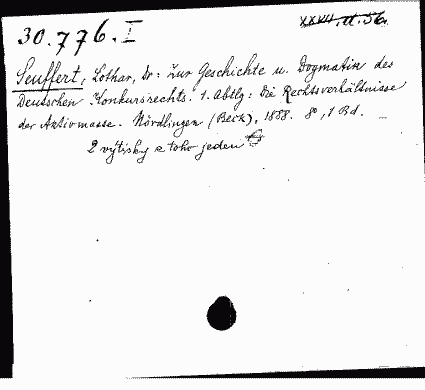 30.776.I
XXVII.d.56.
Seuffert, Lothar, Dr: Zur Geschichte u. Dogmatik des
Deutschen Konkursrechts. 1. Abtlg: Die Rechtsverhältnisse
der Aktivmasse. Nördlingen (Beck), 1888. 8°, 1 Bd.
2 výtisky z toho jeden